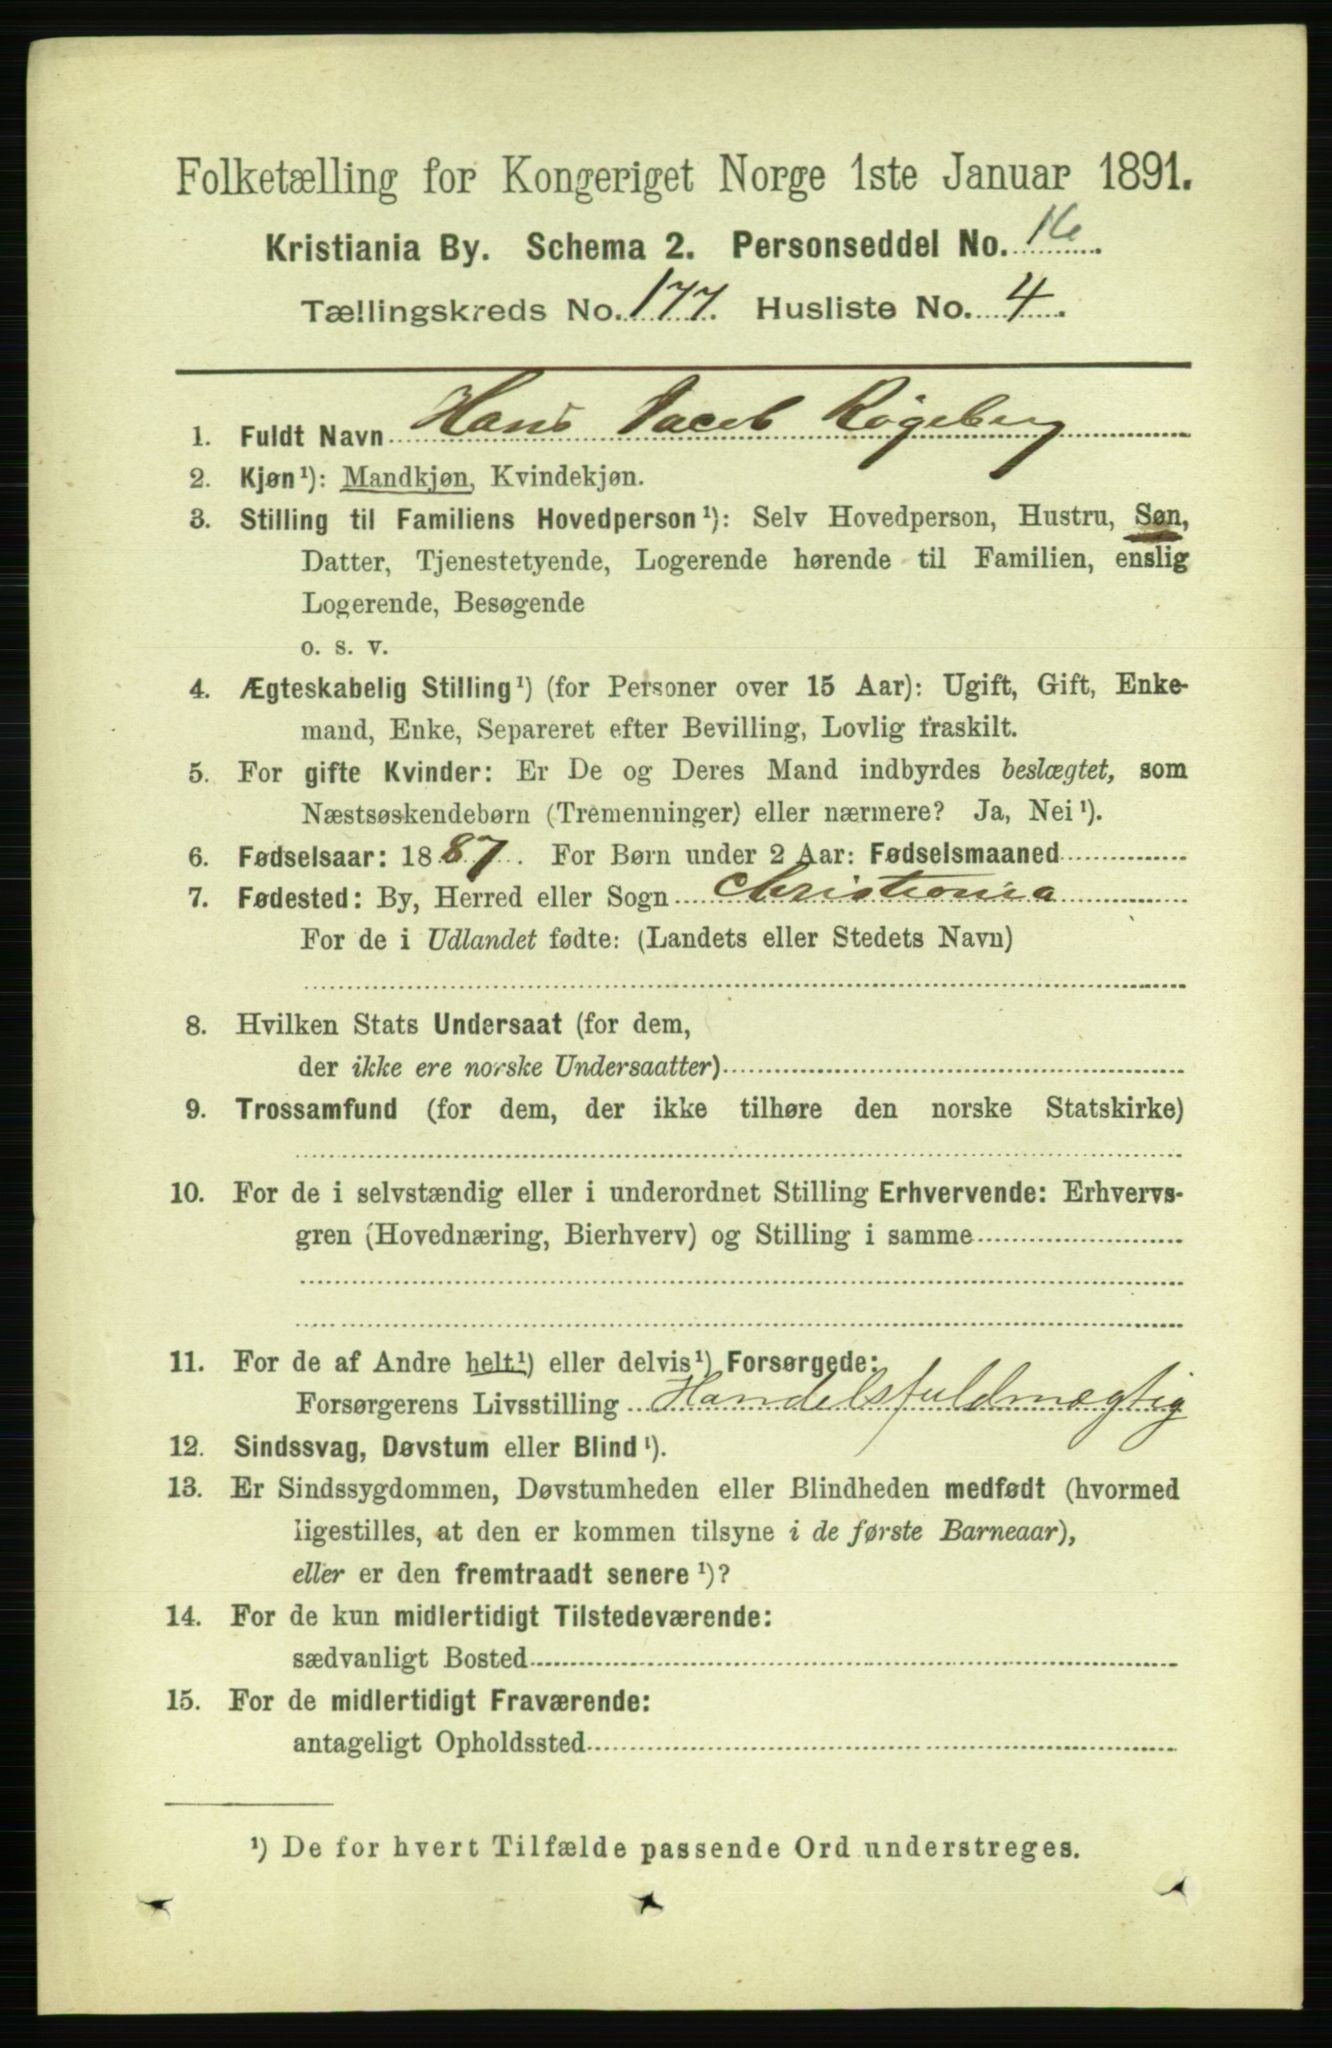 Folketælling for Kongeriget Norge 1ste Januar 1891.
Kristiania By. Schema 2. Personseddel No. 16.
Tællingskreds No. 177. Husliste No. 4.
1. Fuldt Navn Hans Jacob Røgeberg
2. Kjøn¹): Mandkjøn, Kvindekjøn.
3. Stilling til Familiens Hovedperson¹): Selv Hovedperson, Hustru, Søn,
Datter, Tjenestetyende, Logerende hørende til Familien, enslig
Logerende, Besøgende
o. s. v.
4. Ægteskabelig Stilling¹) (for Personer over 15 Aar): Ugift, Gift, Enke-
mand, Enke, Separeret efter Bevilling, Lovlig fraskilt.
5. For gifte Kvinder: Er De og Deres Mand indbyrdes beslægtet, som
Næstsøskendebørn (Tremenninger) eller nærmere? Ja, Nei¹).
6. Fødselsaar: 1887. For Børn under 2 Aar: Fødselsmaaned
7. Fødested: By, Herred eller Sogn Christiania
For de i Udlandet fødte: (Landets eller Stedets Navn)
8. Hvilken Stats Undersaat (for dem,
der ikke ere norske Undersaatter)
9. Trossamfund (for dem, der ikke tilhøre den norske Statskirke)
10. For de i selvstændig eller i underordnet Stilling Erhvervende: Erhvervs-
gren (Hovednæring, Bierhverv) og Stilling i samme
11. For de af Andre helt¹) eller delvis¹) Forsørgede:
Forsørgerens Livsstilling Handelsfuldmægtig
12. Sindssvag, Døvstum eller Blind¹).
13. Er Sindssygdommen, Døvstumheden eller Blindheden medfødt (hvormed
ligestilles, at den er kommen tilsyne i de første Barneaar),
eller er den fremtraadt senere¹)?
14. For de kun midlertidigt Tilstedeværende:
sædvanligt Bosted
15. For de midlertidigt Fraværende:
antageligt Opholdssted
¹) De for hvert Tilfælde passende Ord understreges.